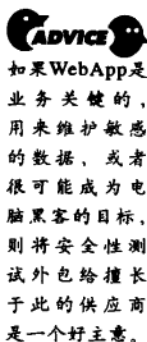 ADVICE
如果WebApp是
业务关键的，
用来维护敏感
的数据，或者
很可能成为电
脑黑客的目标，
则将安全性测
试外包给擅长
于此的供应商
是一个好主意。